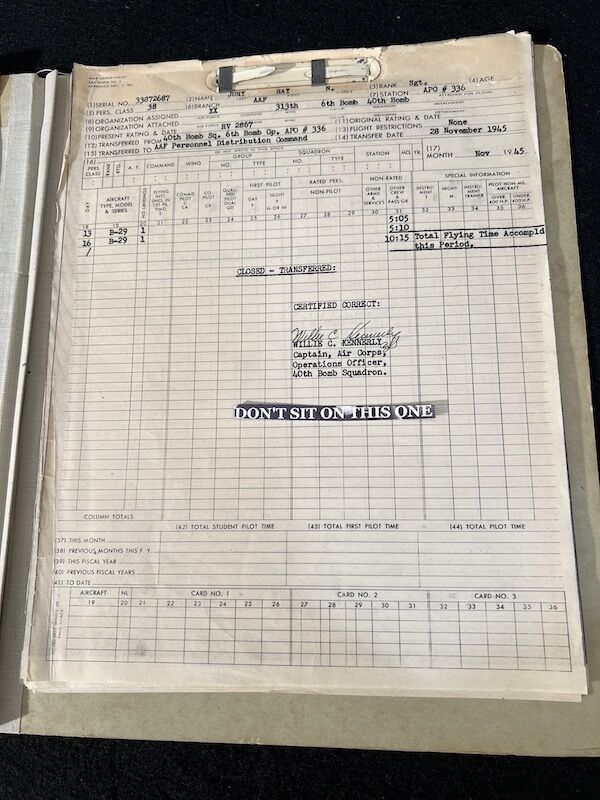 WAR DEPARTMENT
(1) SERIAL NO. 33872687 (2) NAME JURY RAY N. (3) RANK Sgt. (4) AGE
(5) PERS. CLASS 38 (6) BRANCH AAF (7) STATION APO # 336
(8) ORGANIZATION ASSIGNED XX 313th 6th Bomb 40th Bomb
(9) ORGANIZATION ATTACHED
(10) PRESENT RATING & DATE RV 2867 (11) ORIGINAL RATING & DATE None
(12) TRANSFERRED FROM 40th Bomb Sq. 6th Bomb Gp. APO # 336 (13) FLIGHT RESTRICTIONS
(15) TRANSFERRED TO AAF Personnel Distribution Command (14) TRANSFER DATE 28 November 1945
(16) (17) MONTH Nov 1945
PERS. CLASS RANK RTG. A. F. COMMAND WING GROUP NO. TYPE SQUADRON NO. TYPE STATION MO. YR.
DAY AIRCRAFT TYPE, MODEL & SERIES LANDINGS FIRST PILOT RATED PERS. NON-PILOT NON-RATED SPECIAL INFORMATION
18 19 20 21 22 23 24 25 26 27 28 29 30 31 32 33 34 35 36
5:05
13 B-29 1 5:10
16 B-29 1 10:15 Total Flying Time Accompld
/ this Period.
CLOSED - TRANSFERRED:
CERTIFIED CORRECT:
Willie C. Kennerly
WILLIE C. KENNERLY
Captain, Air Corps,
Operations Officer,
40th Bomb Squadron.
DON'T SIT ON THIS ONE
COLUMN TOTALS
(42) TOTAL STUDENT PILOT TIME (43) TOTAL FIRST PILOT TIME (44) TOTAL PILOT TIME
(37) THIS MONTH
(38) PREVIOUS MONTHS THIS F. Y.
(39) THIS FISCAL YEAR
(40) PREVIOUS FISCAL YEARS
(41) TO DATE
AIRCRAFT NL CARD NO. 1 CARD NO. 2 CARD NO. 3
19 20 21 22 23 24 25 26 27 28 29 30 31 32 33 34 35 36